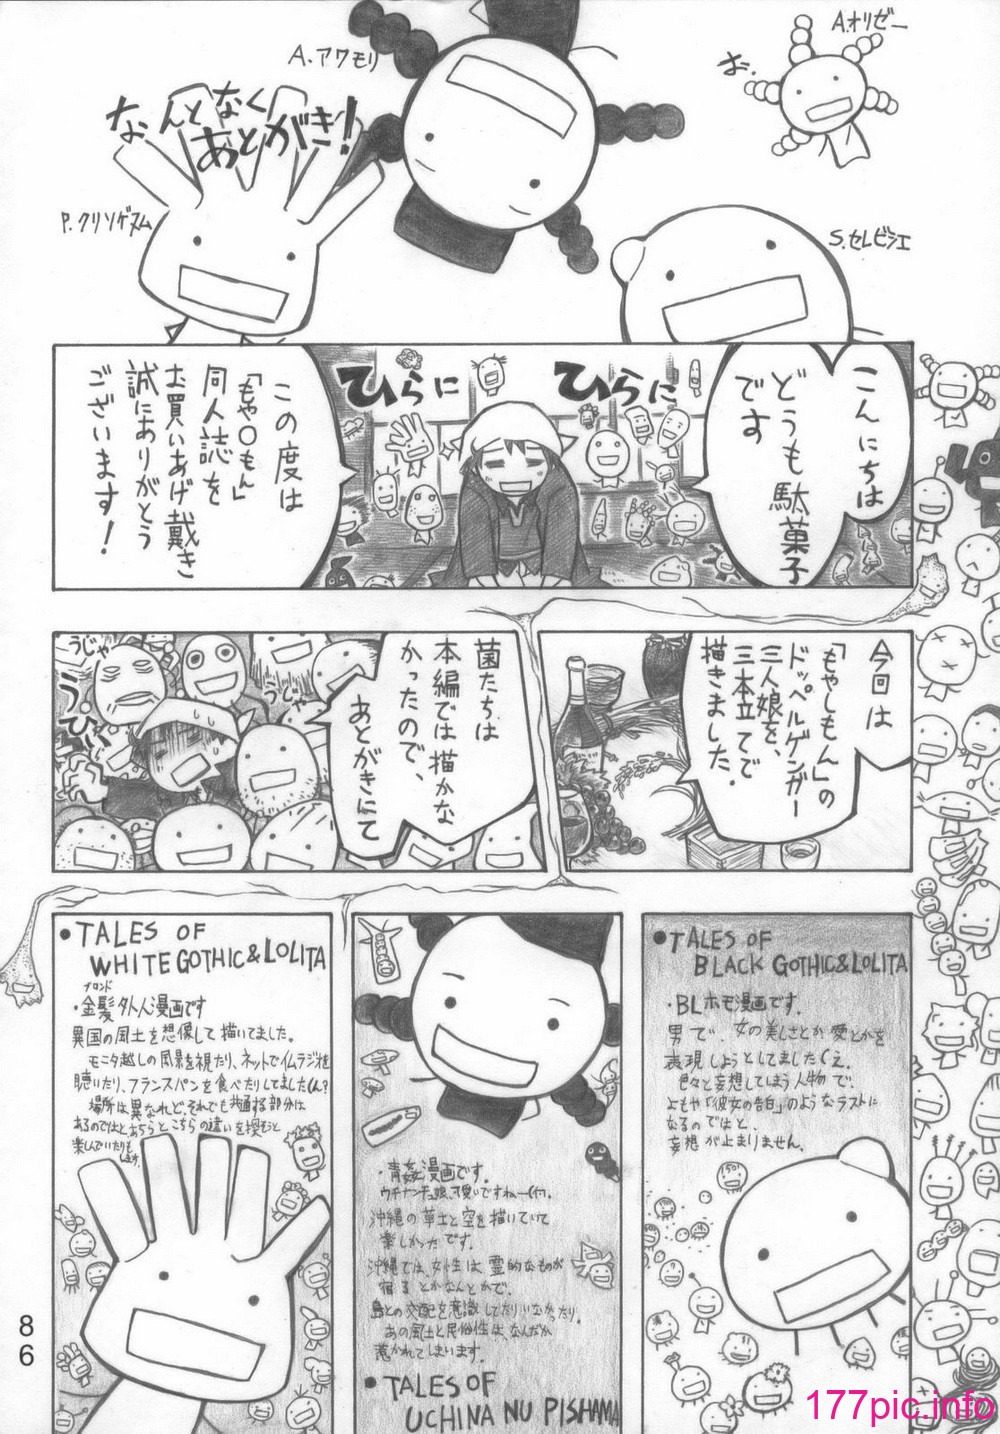 A.アワモリ
A.オリゼー
お。
なんとなく
あとがき!
P.クリソゲヌム
S.セレビシエ
こんにちは
どうも駄菓子
です
ひらに
ひらに
この度は
「もや〇もん」
同人誌を
お買いあげ戴き
誠にありがとう
ございます!
今回は
「もやしもん」の
ドッペルゲンガー
三人娘を、
三本立てで
描きました。
菌たちは
本編では描かな
かったので、
あとがきにて
うじゃ
うじゃ
う・ひぃ
●TALES OF
BLACK GOTHIC&LOLITA
・BLホモ漫画です。
男で、女の美しさとか愛とかを
表現しようとしてましたくえ。
色々と妄想してしまう人物で、
よもや「彼女の告白」のようなラストに
なるのではと、
妄想が止まりません。
・青姦漫画です。
沖縄の草土と空を描いていて
楽しかったです。
沖縄では、女性は霊的なものが
宿るとかなんとかで、
島との交配を意識してたりいなかったり。
あの風土と民俗性は、なんだか
惹かれてしまいます。
●TALES OF
UCHINA NU PISHAMA
●TALES OF
WHITE GOTHIC&LOLITA
ブロンド
・金髪外人漫画です
異国の風土を想像して描いてました。
モニタ越しの風景を視たり、ネットでイムラジオを
聴いたり、フランスパンを食べたりしてましたくん?
場所は異なれど、それでも共通する部分は
あるのではとあちらとこちらの違いを探そうと
楽しんでいたりも
します。
86
177pic.info